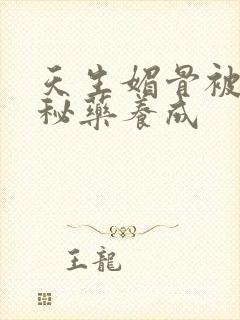 天生媚骨被
秘藥養成
王龍